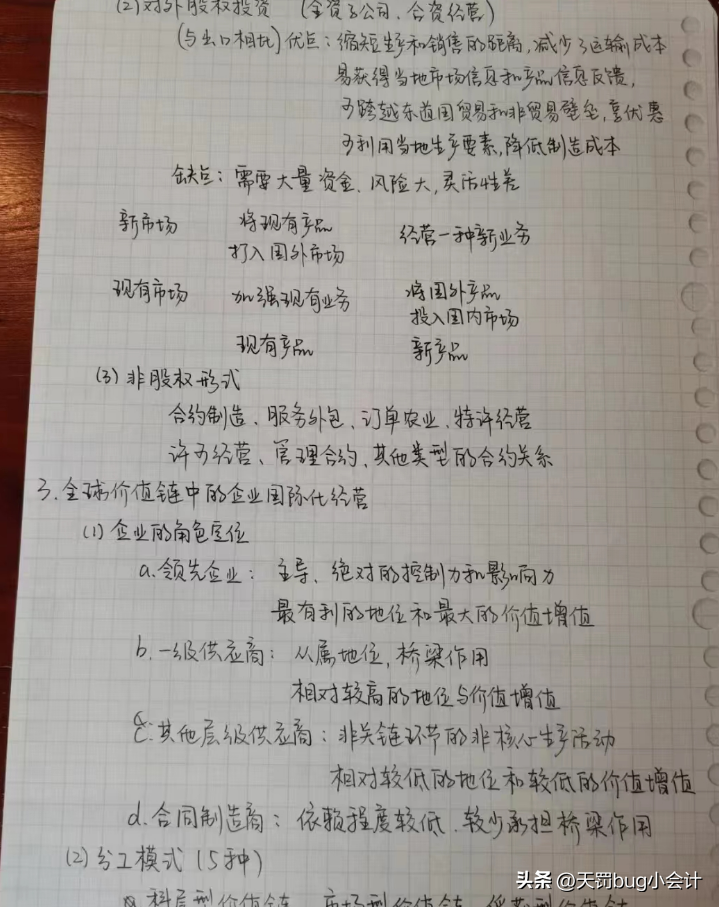 (2) 对外股权投资 (全资子公司、合资经营)
(与出口相比) 优点：缩短生产和销售的距离，减少了运输成本
易获得当地市场信息和产品信息反馈，
可跨越东道国贸易和非贸易壁垒，享优惠
可利用当地生产要素，降低制造成本
缺点：需要大量资金、风险大，灵活性差
新市场 将现有产品 经营一种新业务
打入国外市场
现有市场 加强现有业务 将国外产品
投入国内市场
现有产品 新产品
(3) 非股权形式
合约制造、服务外包、订单农业、特许经营
许可经营、管理合约、其他类型的合约关系
3.全球价值链中的企业国际化经营
(1) 企业的角色定位
a.领先企业：主导、绝对的控制力和影响力
最有利的地位和最大的价值增值
b.一级供应商：从属地位，桥梁作用
相对较高的地位与价值增值
c.其他层级供应商：非关链环节的非核心生产活动
相对较低的地位和较低的价值增值
d.合同制造商：依赖程度较低、较少承担桥梁作用
(2) 分工模式 (5种)
a.科层型价值链、市场型价值链、俘获型价值链
头条 @天罚bug小会计